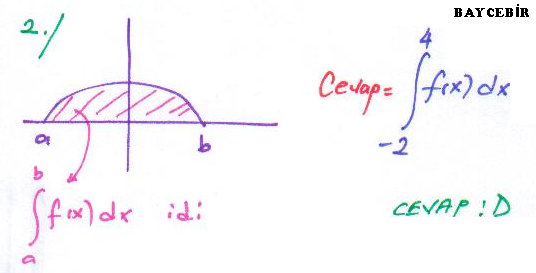 BAYCEBİR
2./
a b
b
∫ f(x) dx idi
a
Cevap = 
4
∫ f(x) dx
-2
CEVAP : D